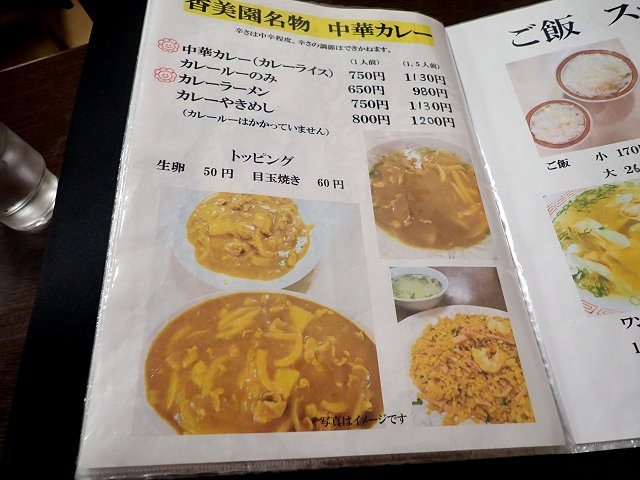 香美園名物 中華カレー
辛さは中辛程度。辛さの調節はできかねます。
(1人前) (1.5人前)
中華カレー(カレーライス) 750円 1130円
カレールーのみ 650円 980円
カレーラーメン 750円 1130円
カレーやきめし 800円 1200円
(カレールーはかかっていません)
トッピング
生卵 50円 目玉焼き 60円
写真はイメージです
ご飯 ス
ご飯 小 170
大 26
ワン
1